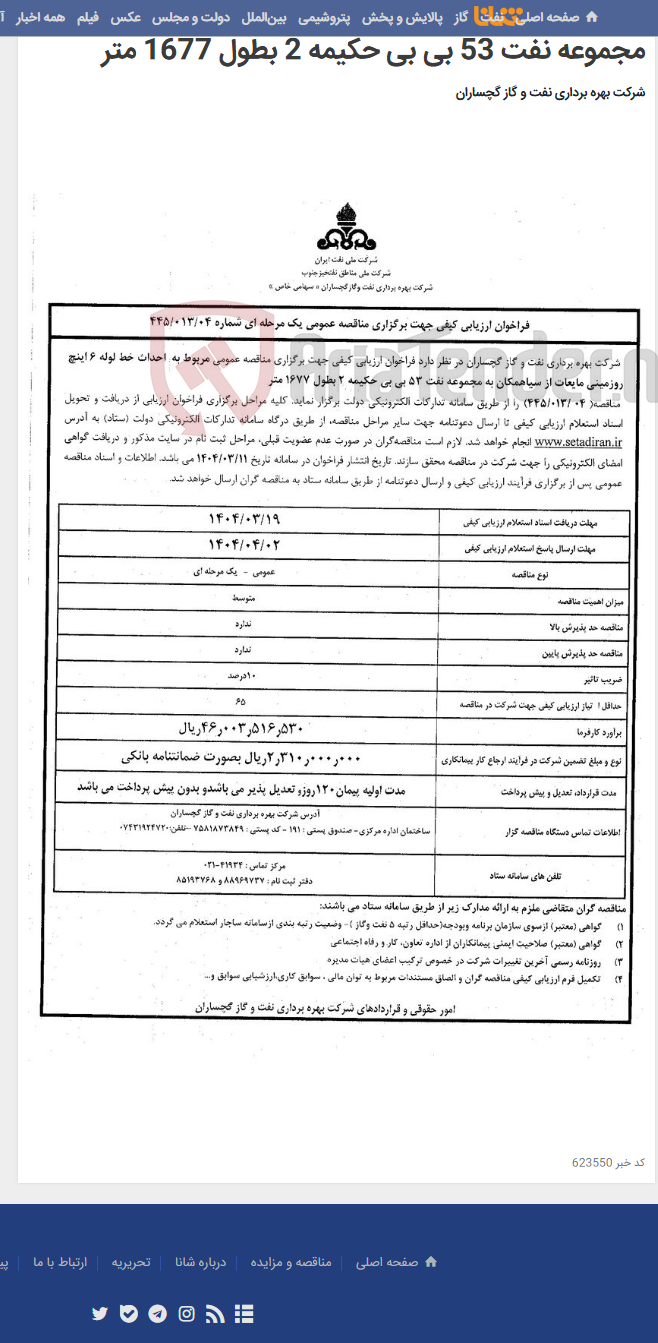 صفحه اصلی نفت گاز پالایش و پخش پتروشیمی بین‌الملل دولت و مجلس عکس فیلم همه اخبار
شانا
مجموعه نفت 53 بی بی حکیمه 2 بطول 1677 متر
شرکت بهره برداری نفت و گاز گچساران
شرکت ملی نفت ایران
شرکت ملی مناطق نفتخیز جنوب
شرکت بهره برداری نفت و گاز گچساران « سهامی خاص »
AriaTender.com
فراخوان ارزیابی کیفی جهت برگزاری مناقصه عمومی یک مرحله ای شماره ۴۴۵/۰۱۳/۰۴
شرکت بهره برداری نفت و گاز گچساران در نظر دارد فراخوان ارزیابی کیفی جهت برگزاری مناقصه عمومی مربوط به احداث خط لوله ۶ اینچ
روزمینی مایعات از سیاهمکان به مجموعه نفت ۵۳ بی بی حکیمه ۲ بطول ۱۶۷۷ متر
مناقصه( ۴۴۵/۰۱۳/۰۴) را از طریق سامانه تدارکات الکترونیکی دولت برگزار نماید. کلیه مراحل برگزاری فراخوان ارزیابی از دریافت و تحویل
اسناد استعلام ارزیابی کیفی تا ارسال دعوتنامه جهت سایر مراحل مناقصه، از طریق درگاه سامانه تدارکات الکترونیکی دولت (ستاد) به آدرس
www.setadiran.ir انجام خواهد شد. لازم است مناقصه‌گران در صورت عدم عضویت قبلی، مراحل ثبت نام در سایت مذکور و دریافت گواهی
امضای الکترونیکی را جهت شرکت در مناقصه محقق سازند. تاریخ انتشار فراخوان در سامانه تاریخ ۱۴۰۴/۰۳/۱۱ می باشد. اطلاعات و اسناد مناقصه
عمومی پس از برگزاری فرآیند ارزیابی کیفی و ارسال دعوتنامه از طریق سامانه ستاد به مناقصه گران ارسال خواهد شد.
مهلت دریافت اسناد استعلام ارزیابی کیفی ۱۴۰۴/۰۳/۱۹
مهلت ارسال پاسخ استعلام ارزیابی کیفی ۱۴۰۴/۰۴/۰۲
نوع مناقصه عمومی - یک مرحله ای
میزان اهمیت مناقصه متوسط
مناقصه حد پذیرش بالا ندارد
مناقصه حد پذیرش پایین ندارد
ضریب تاثیر ۱۰درصد
حداقل ا تیاز ارزیابی کیفی جهت شرکت در مناقصه ۶۵
برآورد کارفرما ۴۶٫۰۰۳٫۵۱۶٫۵۳۰ریال
نوع و مبلغ تضمین شرکت در فرآیند ارجاع کار پیمانکاری ۲٫۳۱۰٫۰۰۰٫۰۰۰ریال بصورت ضمانتنامه بانکی
مدت قرارداد، تعدیل و پیش پرداخت مدت اولیه پیمان۱۲۰روزو تعدیل پذیر می باشدو بدون پیش پرداخت می باشد
آدرس شرکت بهره برداری نفت و گاز گچساران
اطلاعات تماس دستگاه مناقصه گزار ساختمان اداره مرکزی- صندوق پستی : ۱۹۱ - کد پستی : ۷۵۸۱۸۷۳۸۴۹ -تلفن:۰۷۴۳۱۹۲۴۷۲۰
تلفن های سامانه ستاد مرکز تماس : ۴۱۹۳۴-۰۲۱
دفتر ثبت نام : ۸۸۹۶۹۷۳۷ و ۸۵۱۹۳۷۶۸
مناقصه گران متقاضی ملزم به ارائه مدارک زیر از طریق سامانه ستاد می باشند:
۱) گواهی (معتبر) ازسوی سازمان برنامه وبودجه(حداقل رتبه ۵ نفت وگاز )- وضعیت رتبه بندی ازسامانه ساجار استعلام می گردد.
۲) گواهی (معتبر) صلاحیت ایمنی پیمانکاران از اداره تعاون، کار و رفاه اجتماعی
۳) روزنامه رسمی آخرین تغییرات شرکت در خصوص ترکیب اعضای هیات مدیره
۴) تکمیل فرم ارزیابی کیفی مناقصه گران و الصاق مستندات مربوط به توان مالی ، سوابق کاری،ارزشیابی سوابق و...
امور حقوقی و قراردادهای شرکت بهره برداری نفت و گاز گچساران
کد خبر 623550
صفحه اصلی مناقصه و مزایده درباره شانا تحریریه ارتباط با ما